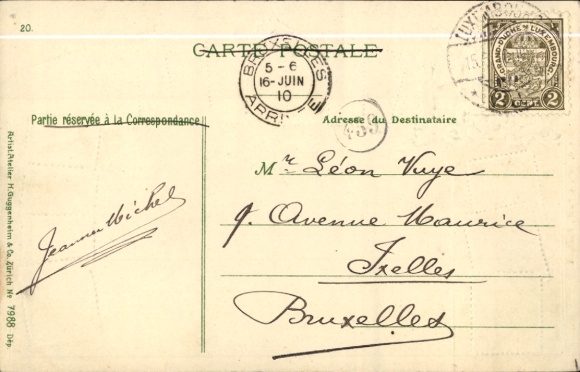 20.
CARTE POSTALE
BRUXELLES
5 - 6
16-JUIN
10
GRAND-DUCHÉ DE LUXEMBOURG
2 CENT. 2
Partie réservée à la Correspondance
Adresse du Destinataire
Mr Léon Vuye
9. Avenue Maurice
Ixelles
Bruxelles
Jeanne Michel
Artist. Atelier H. Guggenheim & Co. Zürich No 7988 Dép.